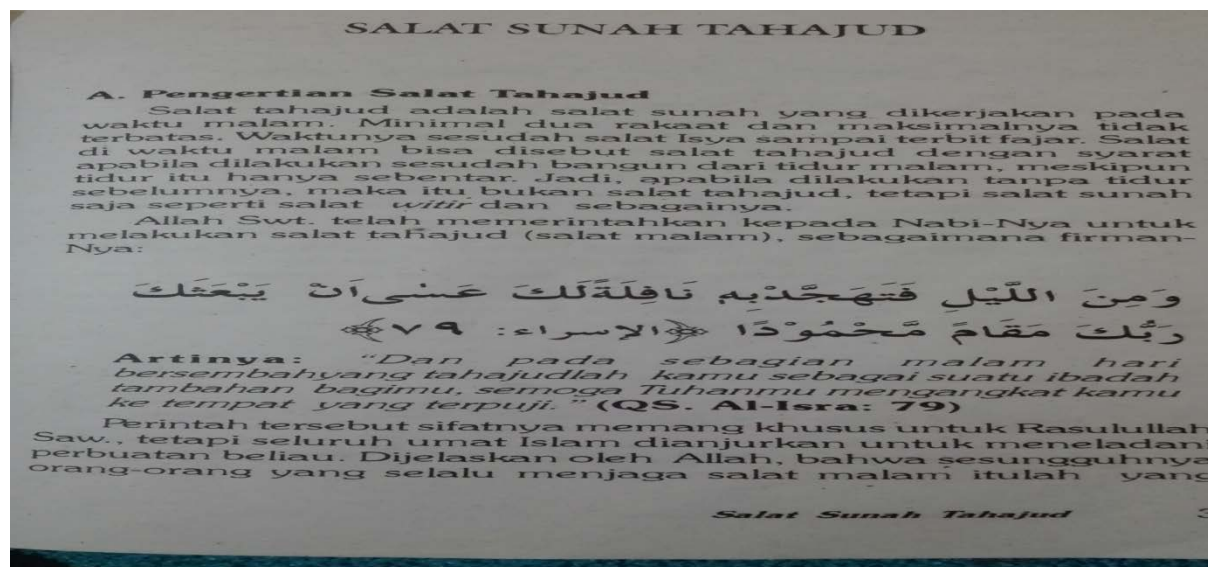 SALAT SUNAH TAHAJUD
A. Pengertian Salat Tahajud
Salat tahajud adalah salat sunah yang dikerjakan pada
waktu malam. Minimal dua rakaat dan maksimalnya tidak
terbatas. Waktunya sesudah salat Isya sampai terbit fajar. Salat
di waktu malam bisa disebut salat tahajud dengan syarat
apabila dilakukan sesudah bangun dari tidur malam, meskipun
tidur itu hanya sebentar. Jadi, apabila dilakukan tanpa tidur
sebelumnya, maka itu bukan salat tahajud, tetapi salat sunah
saja seperti salat witir dan sebagainya.
Allah Swt. telah memerintahkan kepada Nabi-Nya untuk
melakukan salat tahajud (salat malam), sebagaimana firman-
Nya:
وَمِنَ اللَّيْلِ فَتَهَجَّدْ بِهِ نَافِلَةً لَكَ عَسٰى اَنْ يَبْعَثَكَ
رَبُّكَ مَقَامً مَّحْمُوْدًا ﴿الإسراء: ٧٩﴾
Artinya: "Dan pada sebagian malam hari
bersembahyang tahajudlah kamu sebagai suatu ibadah
tambahan bagimu, semoga Tuhanmu mengangkat kamu
ke tempat yang terpuji." (QS. Al-Isra: 79)
Perintah tersebut sifatnya memang khusus untuk Rasulullah
Saw., tetapi seluruh umat Islam dianjurkan untuk meneladani
perbuatan beliau. Dijelaskan oleh Allah, bahwa sesungguhnya
orang-orang yang selalu menjaga salat malam itulah yang
Salat Sunah Tahajud